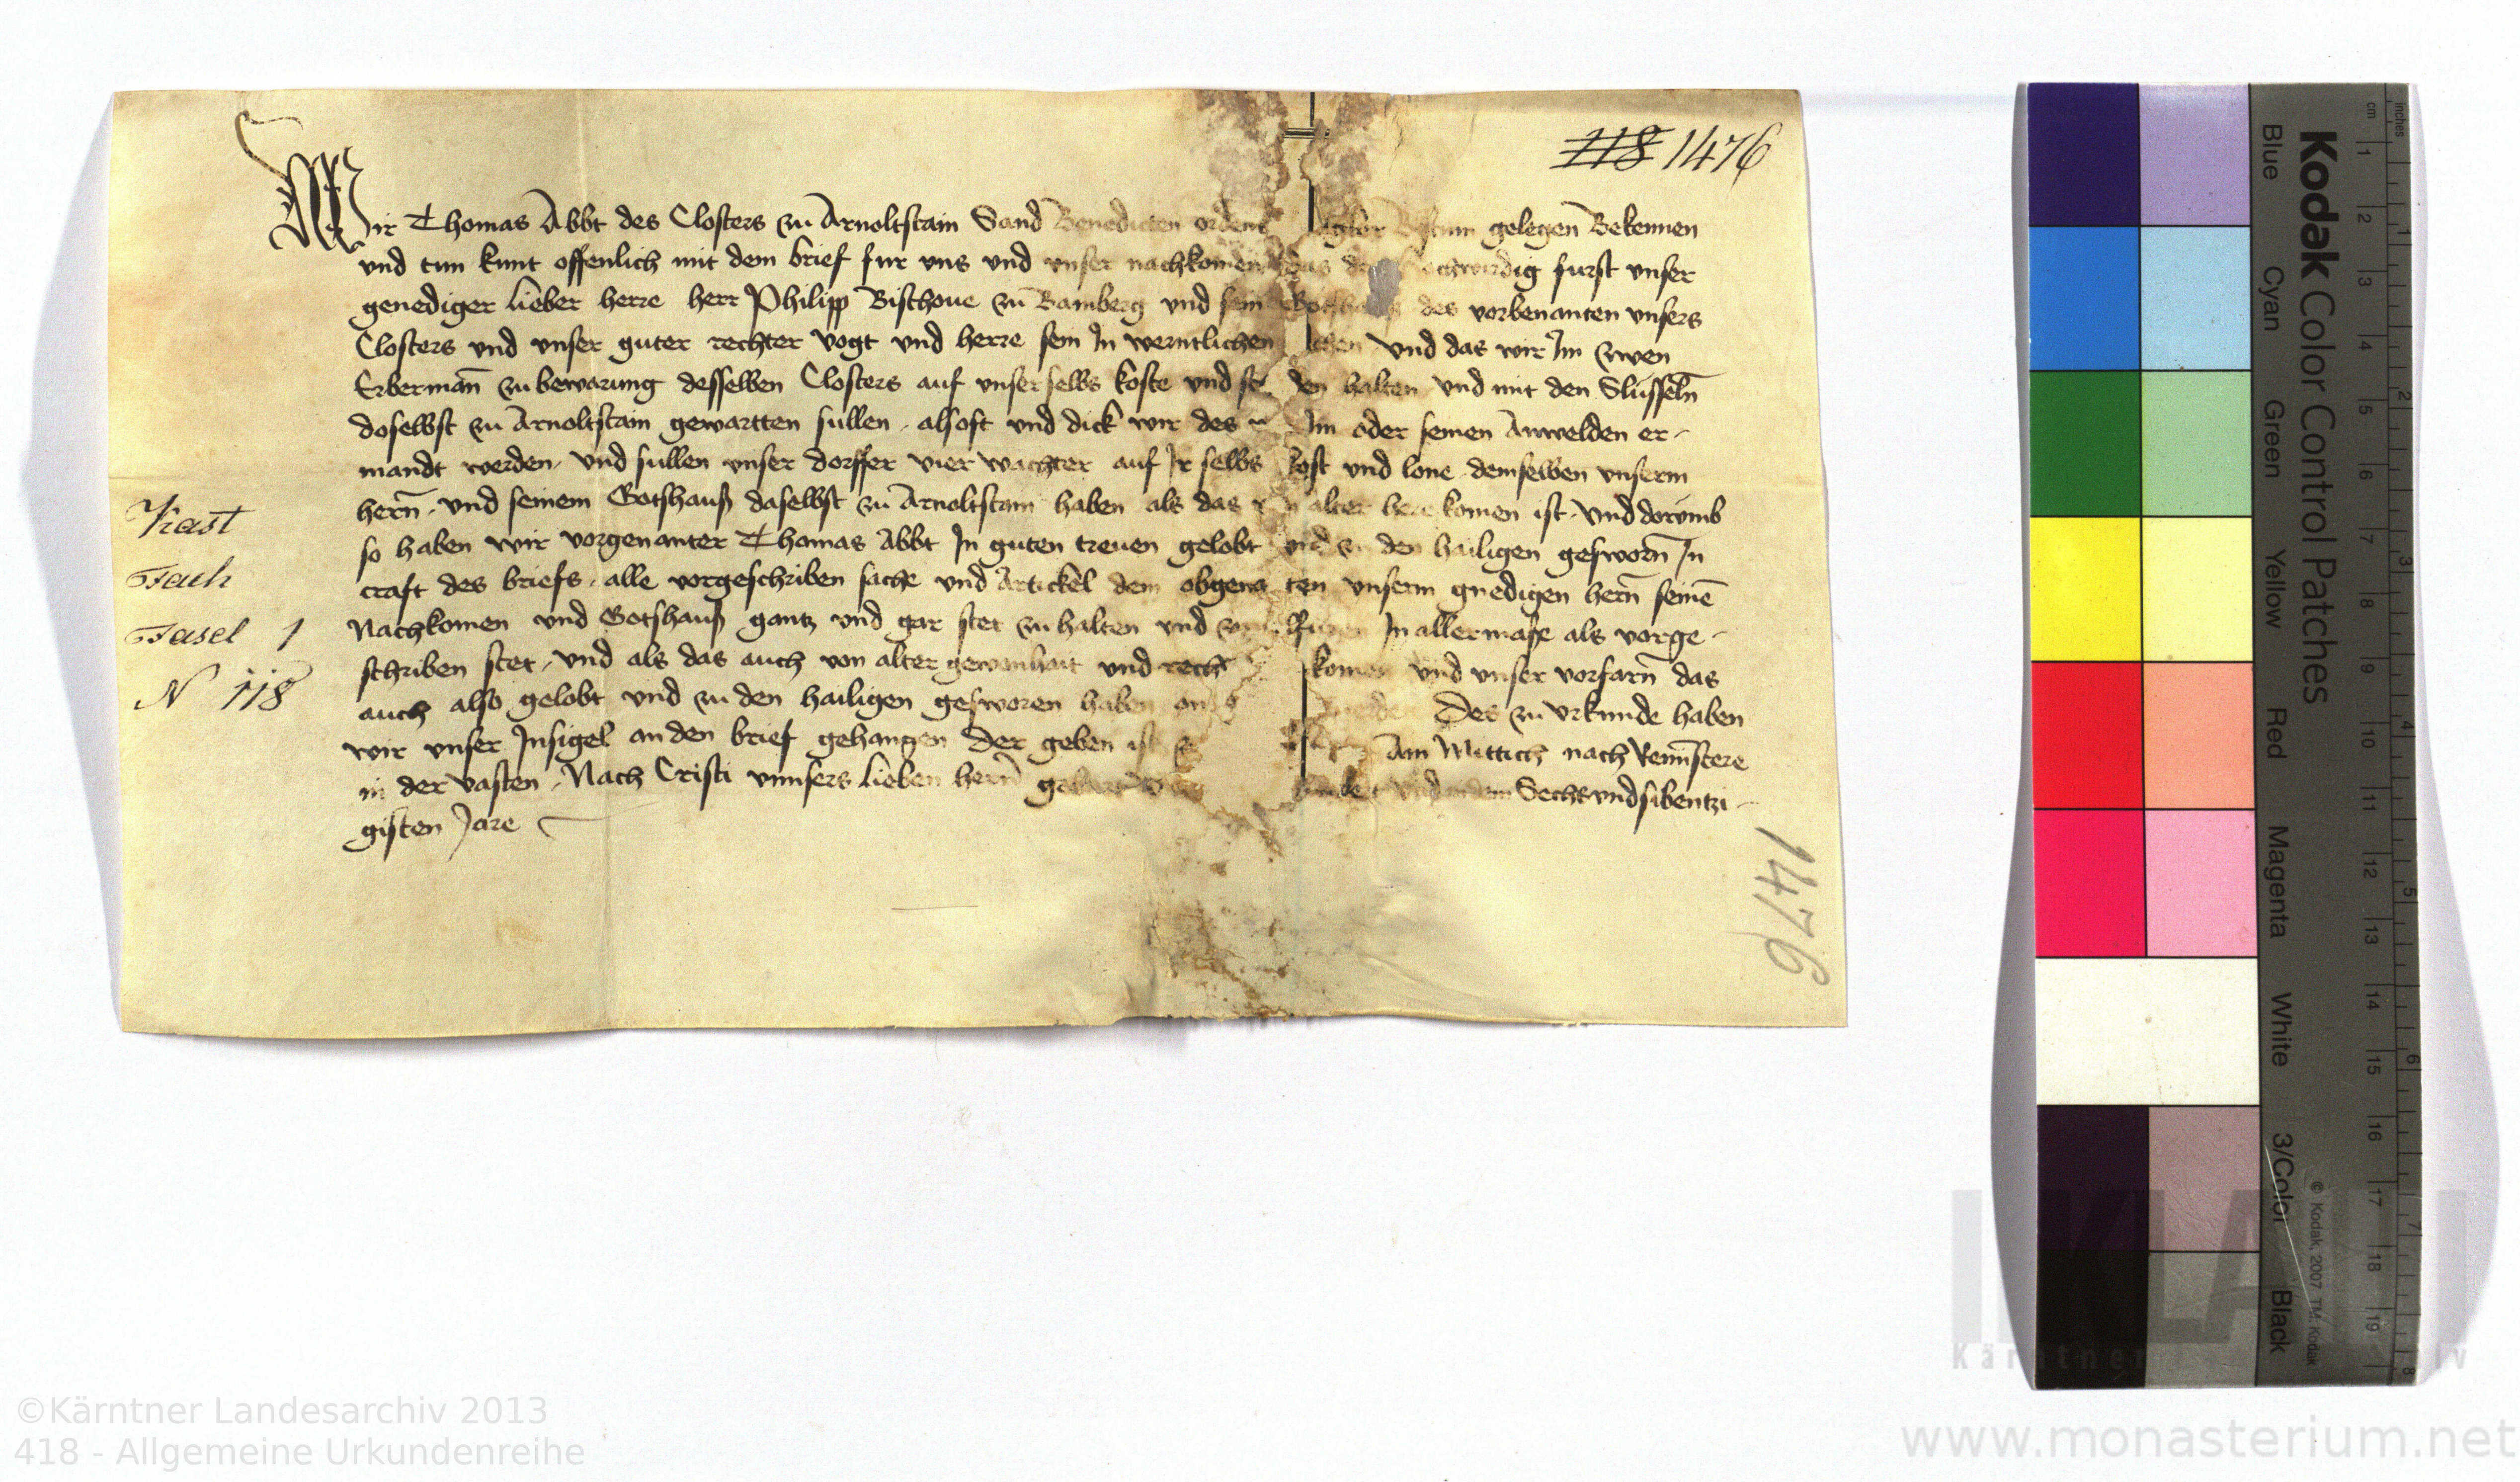 118 1476
Wir Thomas Abbt des Closters zu Arnoltstain Sand Benedicten ordens gelegen Bekennen
und tun kunt offenlich mit dem brief fur uns und unser nachkomen das der furst unser
genediger lieber herre herr Philipp Bischove zu Bamberg und sein des vorbenanten unsers
Closters und unser guter rechter vogt und herre sein In werntlichen und das wir Im zwen
Erberman zu bewarung desselben Closters auf unser selbs koste und halten und mit den Slusseln
doselbst zu Arnoltstain gewartten sullen als oft und dick wir des Im oder seinen Anwelden er-
mandt werden und sullen unser dorffer vier wachter auf Ir selbs kost und lone demselben unserm
hern und seinem Gotshauß daselbst zu Arnoltstain haben als das alter komen ist und dorumb
so haben wir vorgenanter Thomas Abbt In guten treuen gelobt und zu den hailigen gesworn In
craft des briefs alle vorgeschriben sache und Artickel dem unserm gnedigen hern seinē
Nachkomen und Gotshauß gantz und gar stet zu halten und In allermaße als vorge-
schriben stet und als das auch von alter gewonhait und komen und unser vorfarn das
auch also gelobt und zu den hailigen gesworen haben Des zu urkunde haben
wir unser Insigel an den brief gehangen Der geben ist Am Mittich nach Reminiscere
in der vasten Nach Cristi unnsers lieben hern Sechsundsibentzi-
gisten Jare
Kast
Fach
Fasel 1
N 118
1476
Kodak Color Control Patches
Blue Cyan Green Yellow Red Magenta White 3/Color Black
© Kodak, 2007 TM: Kodak
inches
cm 1 2 3 4 5 6 7 8 9 10 11 12 13 14 15 16 17 18 19
1 2 3 4 5 6 7 8
©Kärntner Landesarchiv 2013
418 - Allgemeine Urkundenreihe
www.monasterium.net